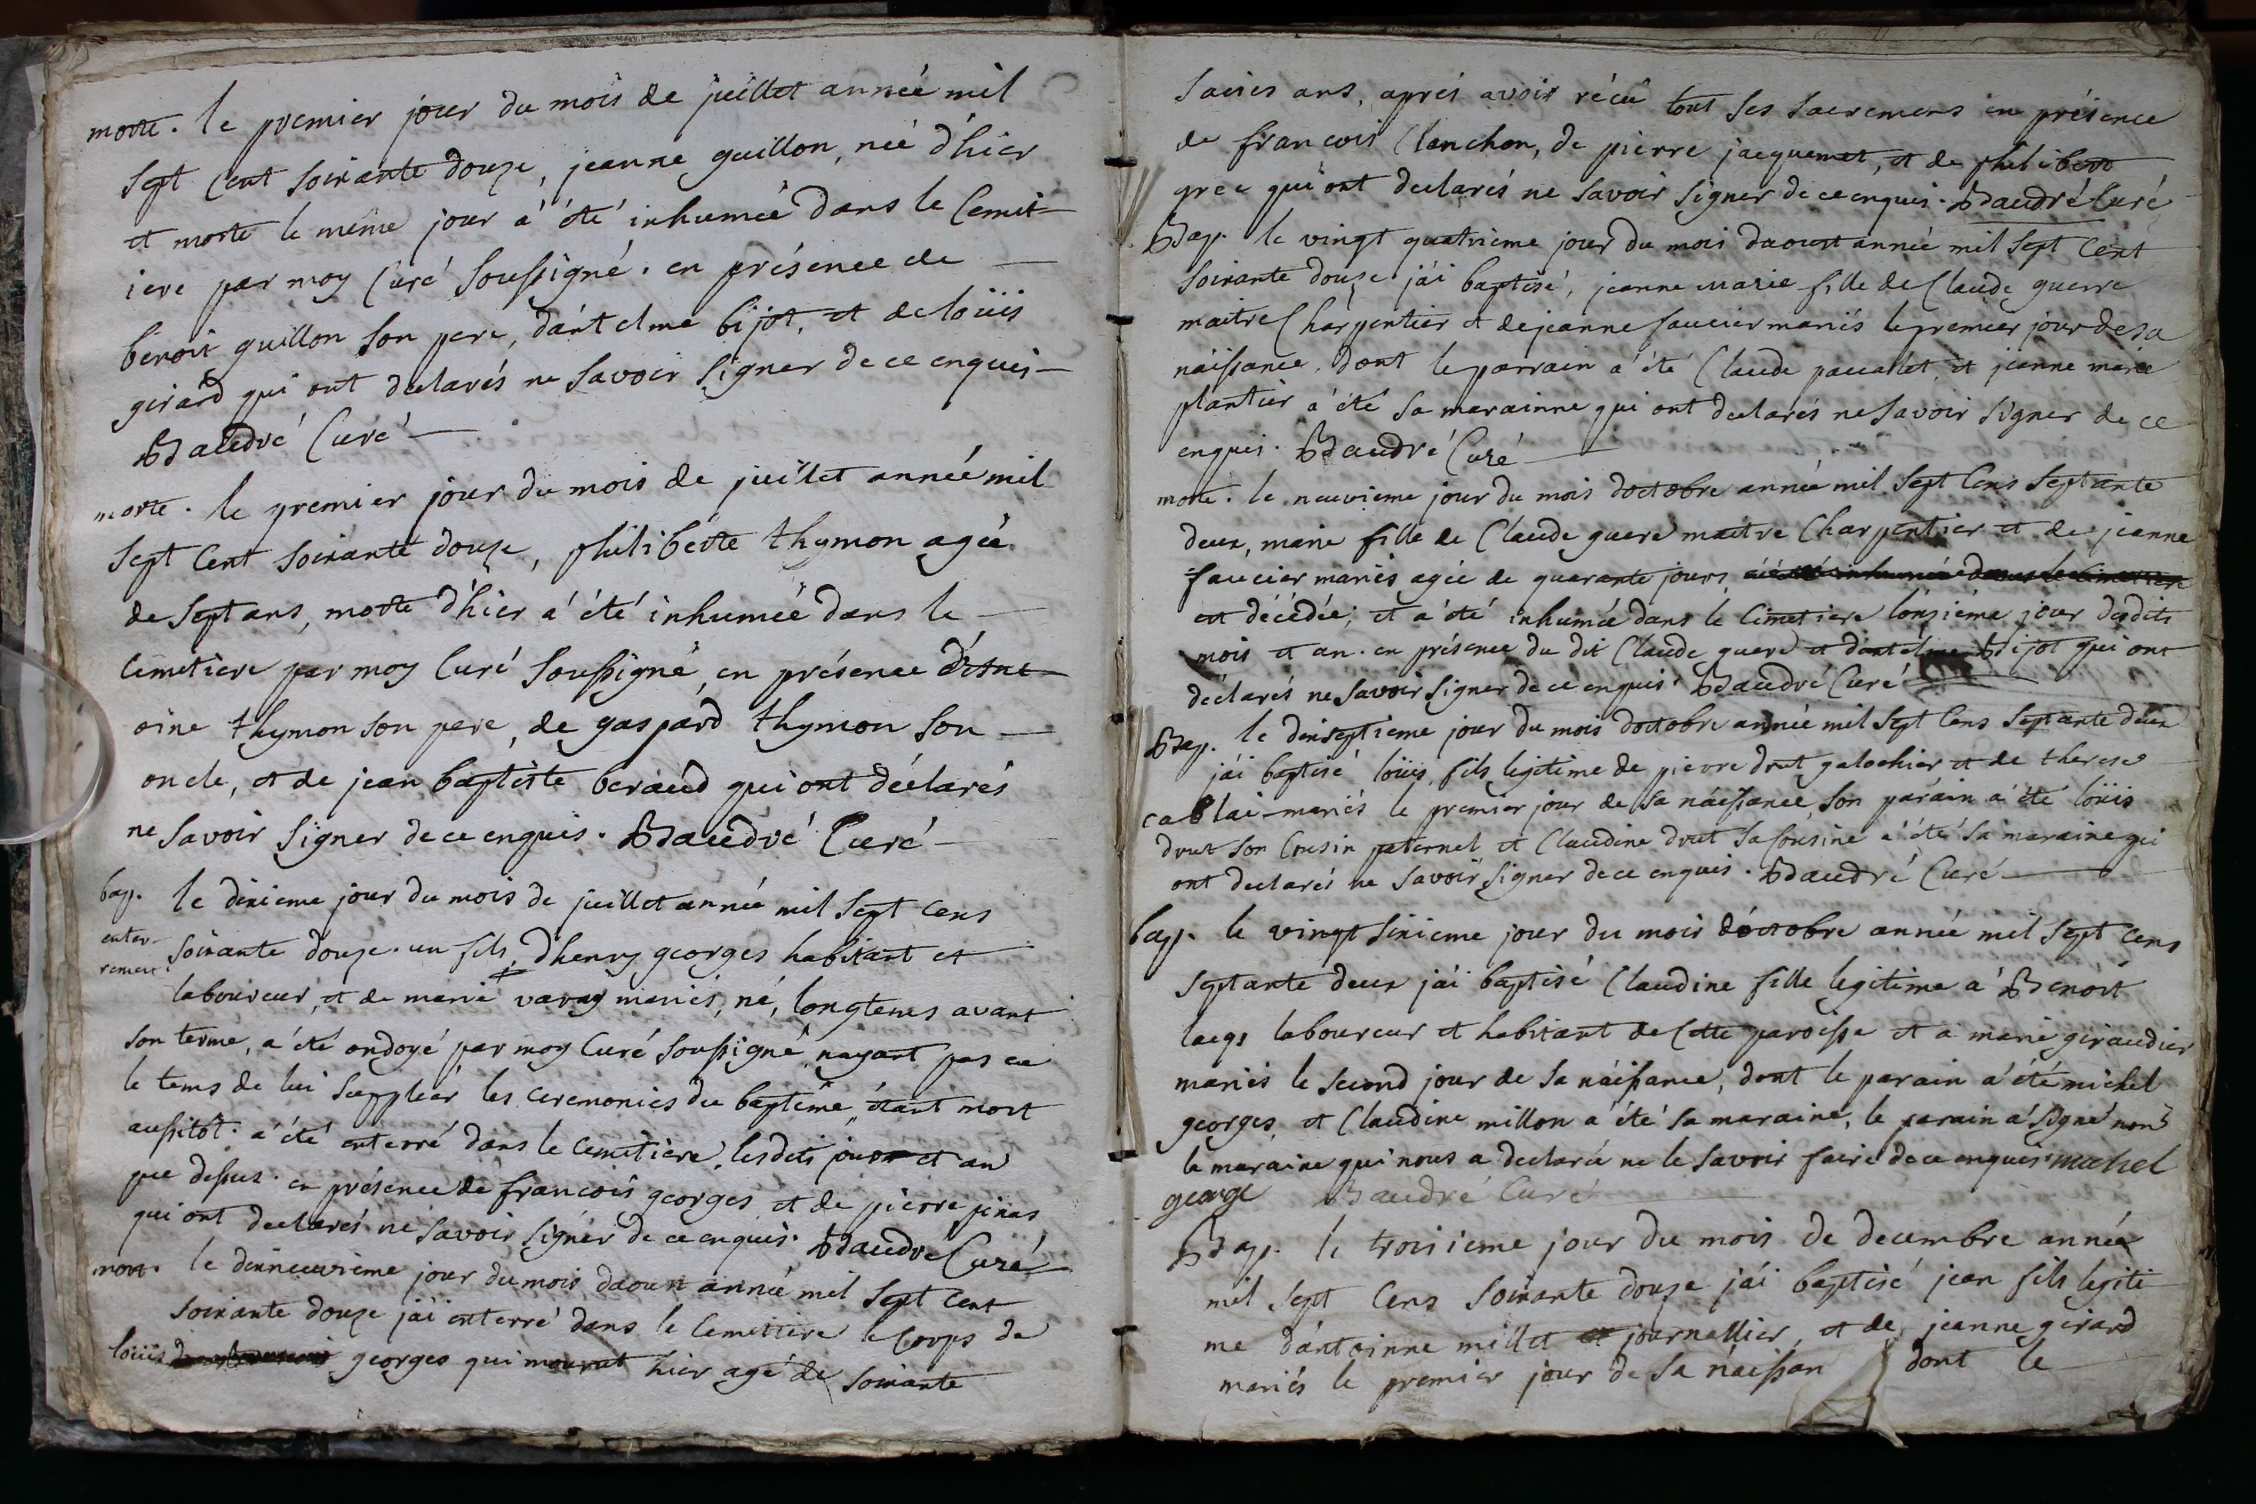 morte. le premier jour du mois de juillet année mil
sept cent soixante douze, jeanne guillon, née d'hier
et morte le même jour a été inhumée dans le cemit-
iere par moy curé soussigné. en présence de
benoit guillon son pere, d'antelme bijot, et de loüis
girard qui ont déclarés ne savoir signer de ce enquis
Baudré Curé
morte. le premier jour du mois de juillet année mil
sept cent soixante douze, philiberte thymon agée
de sept ans, morte d'hier a été inhumée dans le
cimetiere par moy curé soussigné, en présence d'Ant-
oine thymon son pere, de gaspard thymon son
oncle, et de jean baptiste beraud qui ont déclarés
ne savoir signer de ce enquis. Baudré Curé
bap. le dixieme jour du mois de juillet année mil sept cens
enter-
rement. soixante douze. un fils, d'henry georges habitant et
laboureur, et de marie varay mariés, né, longtems avant
son terme, a été ondoyé par moy curé soussigné, n'ayant pas eu
le tems de lui suppléer les ceremonies du baptême, étant mort
aussitôt. a été enterré dans le cemetiere, lesdits jour et an
que dessus. en présence de francois georges et de pierre pinas
qui ont declarés ne savoir signer de ce enquis. Baudré Curé
mort. le dixneuvieme jour du mois daoust année mil sept cent
soixante douze j'ai enterré dans le cemetiere le corps de
loüis georges qui mourut hier agé de soixante
saeies ans, aprés avoir récû tout ses sacremens en présence
de francois Clanchon, de pierre jacquemet, et de philibert
gree qui ont declarés ne savoir signer de ce enquis. Baudré Curé
Bap. le vingt quatrieme jour du mois daoust année mil sept cent
soixante douze j'ai baptisé, jeanne marie fille de Claude guerre
maitre Charpentier et de jeanne faucier mariés le premier jour de sa
naissance. dont le parrain a été Claude paccalet, et jeanne marie
plantier a été sa marainne qui ont declarés ne savoir signer de ce
enquis. Baudré Curé
morte. le neuvieme jour du mois doctobre année mil sept cens septante
deux, marie fille de Claude guere maitre Charpentier et de jeanne
faucier mariés agée de quarante jours, a été inhumée dans le cimetiere
est décédée; et a été inhumée dans le cimetiere l'onzième jour desdits
mois et an. en présence du dit Claude guere et d'antelme Bijot qui ont
déclarés ne savoir signer de ce enquis. Baudré Curé
Bap. le dixseptieme jour du mois doctobre année mil sept cens septante deux
j'ai baptisé loüis fils legitime de pierre drut galochier et de therese
cablai mariés le premier jour de sa naissance, son parain a été loüis
drut son cousin paternel et Claudine drut sa cousine a été sa maraine qui
ont declarés ne savoir signer de ce enquis. Baudré Curé
bap. le vingt sixieme jour du mois d'octobre année mil sept cens
septante deux j'ai baptisé Claudine fille legitime a Benoit
lacqs laboureur et habitant de cette paroisse et a marie giraudier
mariés le second jour de sa naissance, dont le parain a été michel
georges, et Claudine millon a été sa maraine, le parain a signé non
la maraine qui nous a declaré ne le savoir faire de ce enquis michel
george Baudré Curé
Bap. le troisieme jour du mois de decembre année
mil sept cens soixante douze j'ai baptisé jean fils legiti
me d'antoinne millet journallier, et de jeanne girard
mariés le premier jour de sa naissan dont le